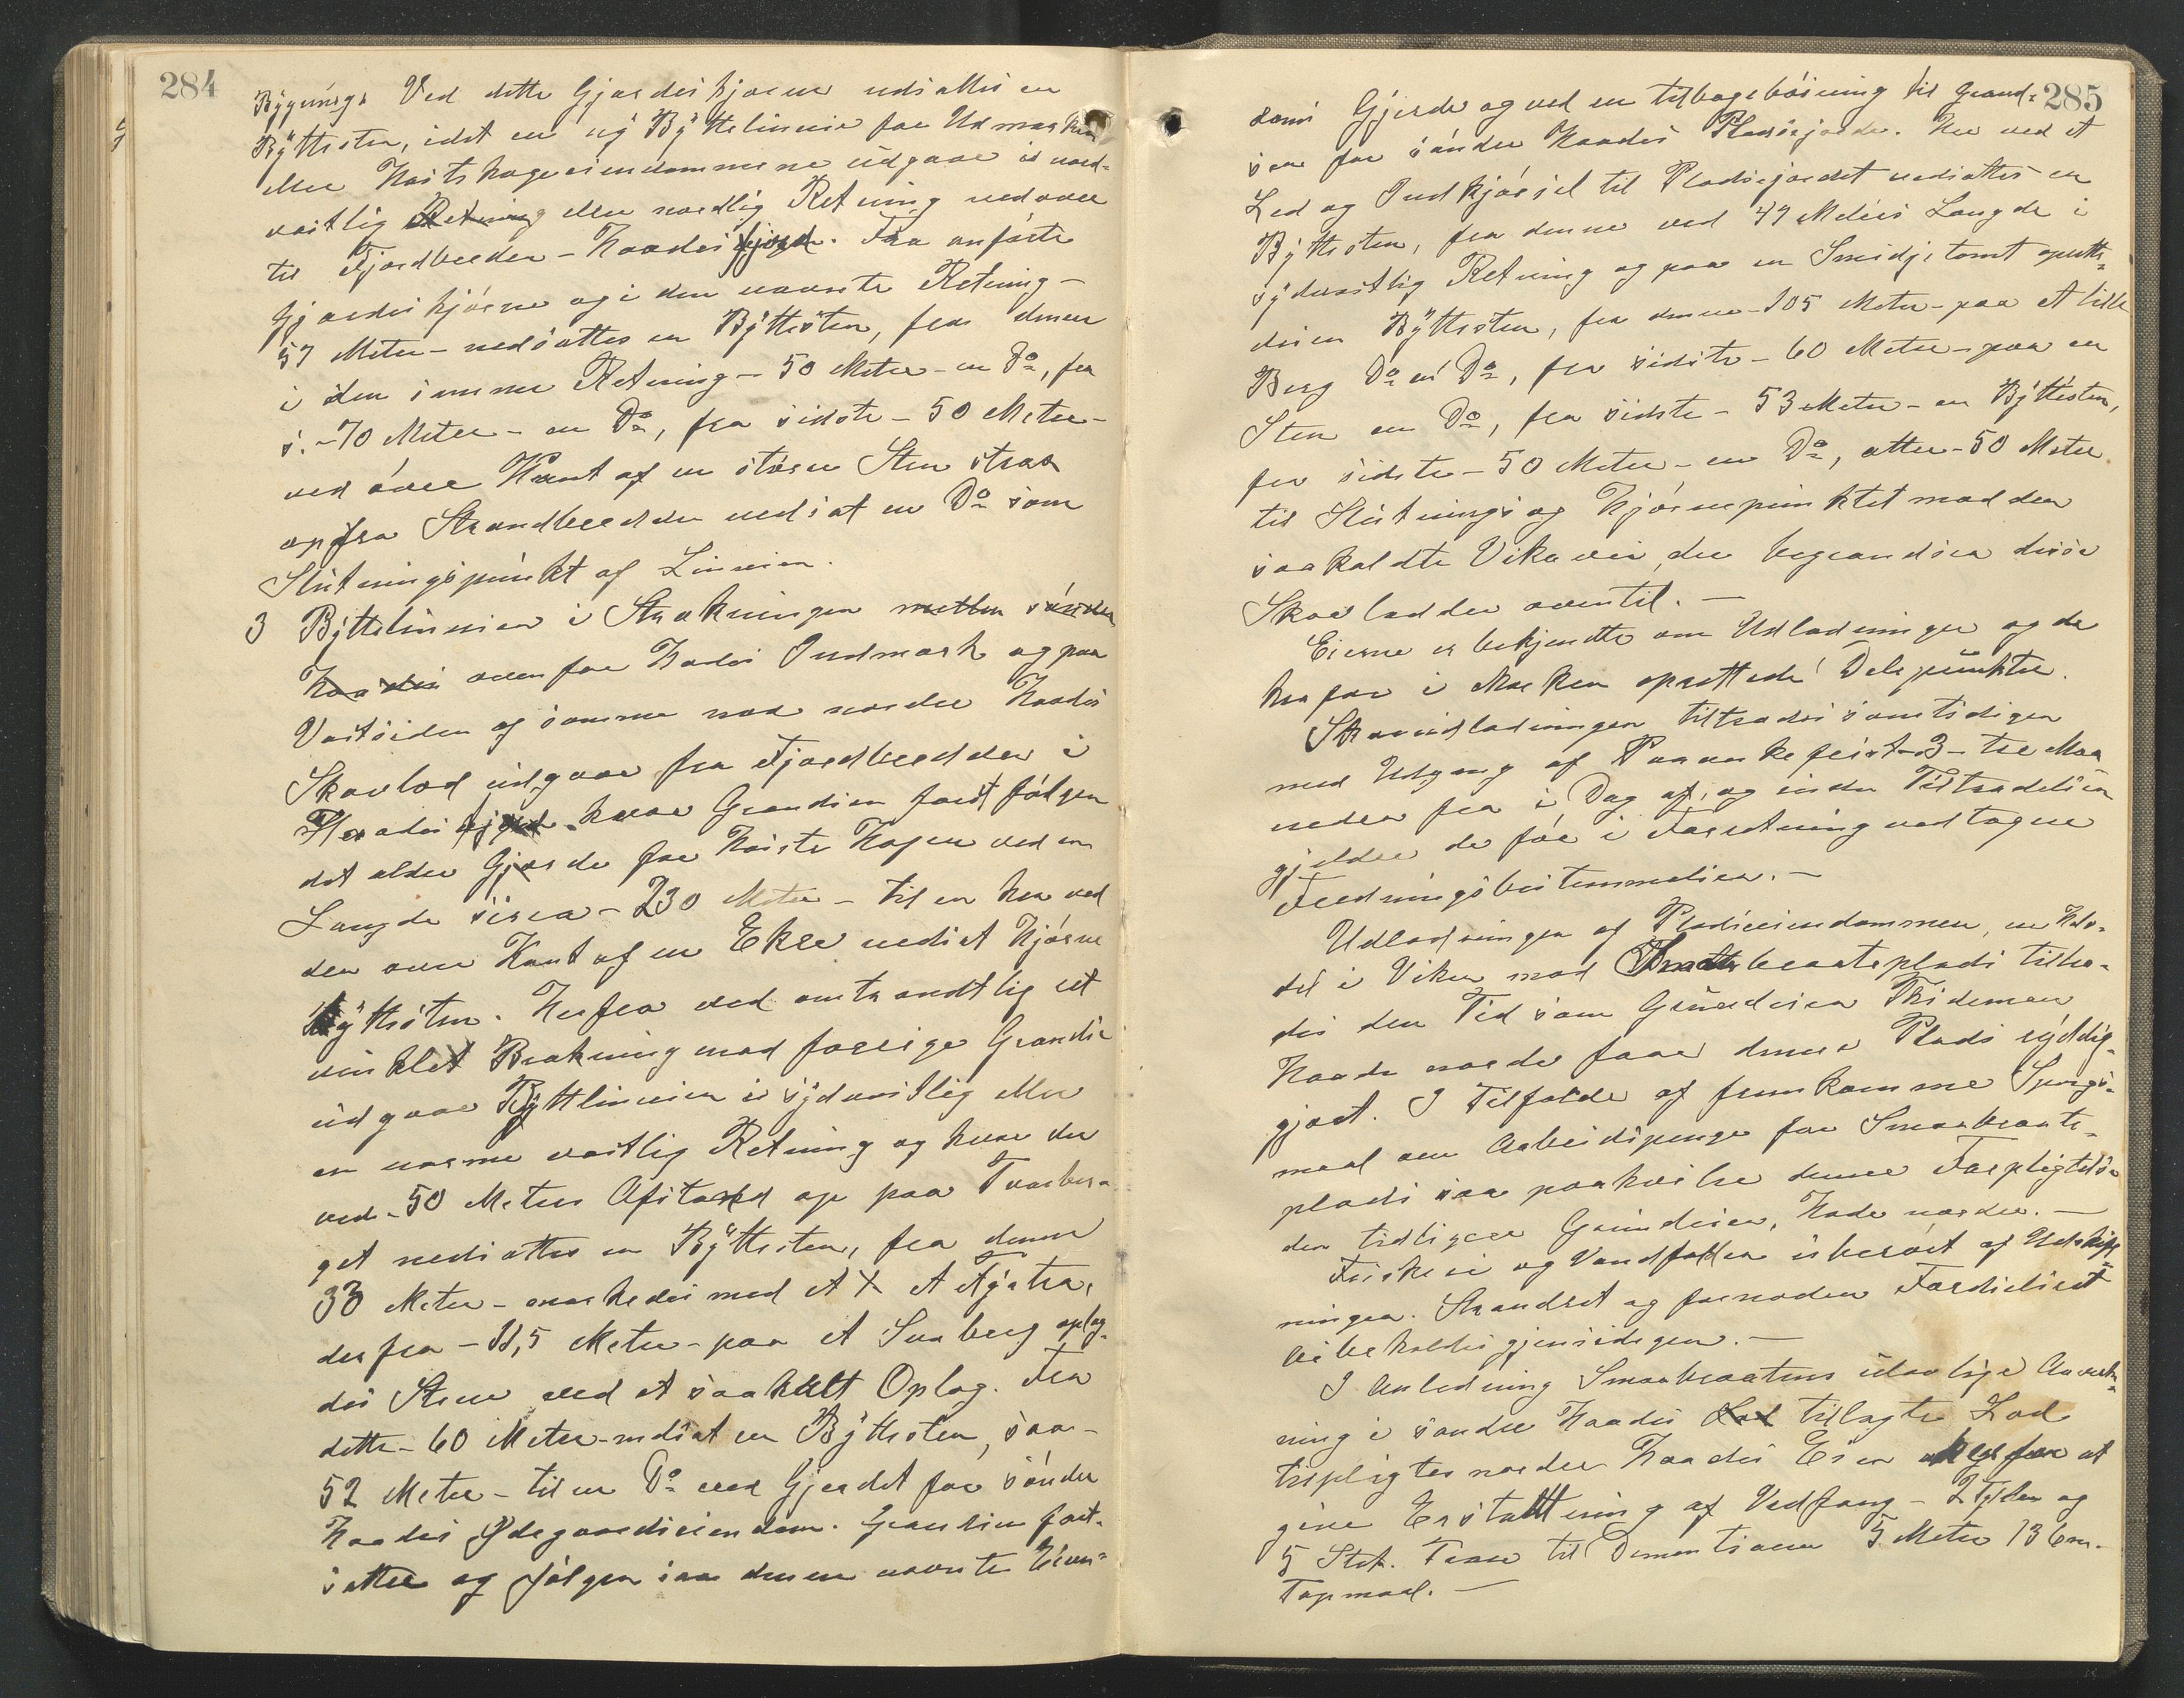 284
Bygnings Ved dette Gjærdeshjørne nedsattes en
Byttesten, idet en ny Byttelinnie for Udmarken
eller Høstehageeiendommene udgaar i nord-
vestlig Retning eller nordlig Retning nedover
til Fjordbredden - Kaades fjord. Fra anførte
Gjærdeshjørne og i den nævnte Retning -
57 Meter - nedsattes en Byttesten, fra denne
i den samme Retning - 50 Meter - en Do, fra
s. - 70 Meter - en Do, fra sidste - 50 Meter -
ved øvre Kant af en større Sten strax
op fra Strandbredden nedsat en Do som
Slutningspunkt af Linnien.
3 Byttelinnien i Strækningen mellem søndre
Kaades ovenfor Kades Indmark og paa
Vestsiden af samme mod nordre Kaades
Skovlod udgaar fra Fjordbredden i
Kaades fjord hvor Grændsen først følger
det ældre Gjærde for Høste Hagen ved en
Længde circa - 230 Meter - til en her ved
den øvre Kant af en Ekre nedsat Hjørne
Byttesten. Herfra ved omtrændtlig ret
vinklet Brækning mod forrige Grændse
udgaar Byttlinnien i sydvestlig eller
en nærme vestlig Retning og hvor der
ved - 50 Meters Afstand op paa Tværber-
get nedsattes en Byttesten, fra denne
33 Meter - mærkedes med et X et
derfra - 11,5 Meter - paa et Svaberg oplag-
des Stene ved et saakalt Oplag. Fra
dette - 60 Meter - nedsat en Byttesten, saa -
52 Meter - til en Do ved Gjerdet for søndre
Kaades Ødegaardseiendom. Grænsen fort-
sætter og følger saa denne nævnte Eien-
285
doms Gjerde og ved en tilbagebøining til Grænd-
sen for søndre Kaades Pladsgjærde. Her ved et
Led og Indkjørsel til Pladsgjærdet nedsattes en
Byttesten, fra denne ved 47 Meters Længde i
sydvestlig Retning og paa en Smidjetomt opsatt-
des en Byttesten, fra denne - 105 Meter - paa et lille
Berg Do en Do, fra sidste - 60 Meter - paa en
Sten en Do, fra sidste - 53 Meter - en Byttesten,
fra sidste - 50 Meter - en Do, atter - 50 Meter
til Slutnings og Hjørnepunktet mod den
saakaldte Vikavei, der begrændser disse
Skovlodder oventil. -
Eierne er bekjendte om Udlodninger og de
herfor i Marken oprettede Delepunkter.
Skovudlodningen tiltrædes samtidigen
med Udgang af Paaankefrist - 3 - tre Maa
neder fra i Dag af, og inden Tiltrædelsen
gjelder de før i Forretning vedtagne
Fredningsbestemmelser. -
Udlodningen af Pladseiendommen, en Hde-
del i Viken mod Smaabraateplads tiltræ-
des den Tid som Grundeieren Thideman
Kaade nordre faaer denne Plads ryddig-
gjort. I Tilfælde af fremkomme Spørgs-
maal om Arbeidspenge for Smaabraate-
plads saa paahviler denne Forpligtelse
den tidligere Grundeier, Kade nordre. -
Fiskeri og Vandfalden er berørt af Udskift-
ningen. Strandret og fornøden Færdselsret
bibeholdes gjensidigen. -
I Anledning Smaabraatens ulovlige Anvirk-
ning i søndre Kaades Lod tillagte Lod
tilpligtes nordre Kaades Eier herfor at
give Erstattning af Vedfang - 2 Tylter og
5 Stk. Træer til Dimentionen 5 Meter 13 Cm.
Topmaal. -